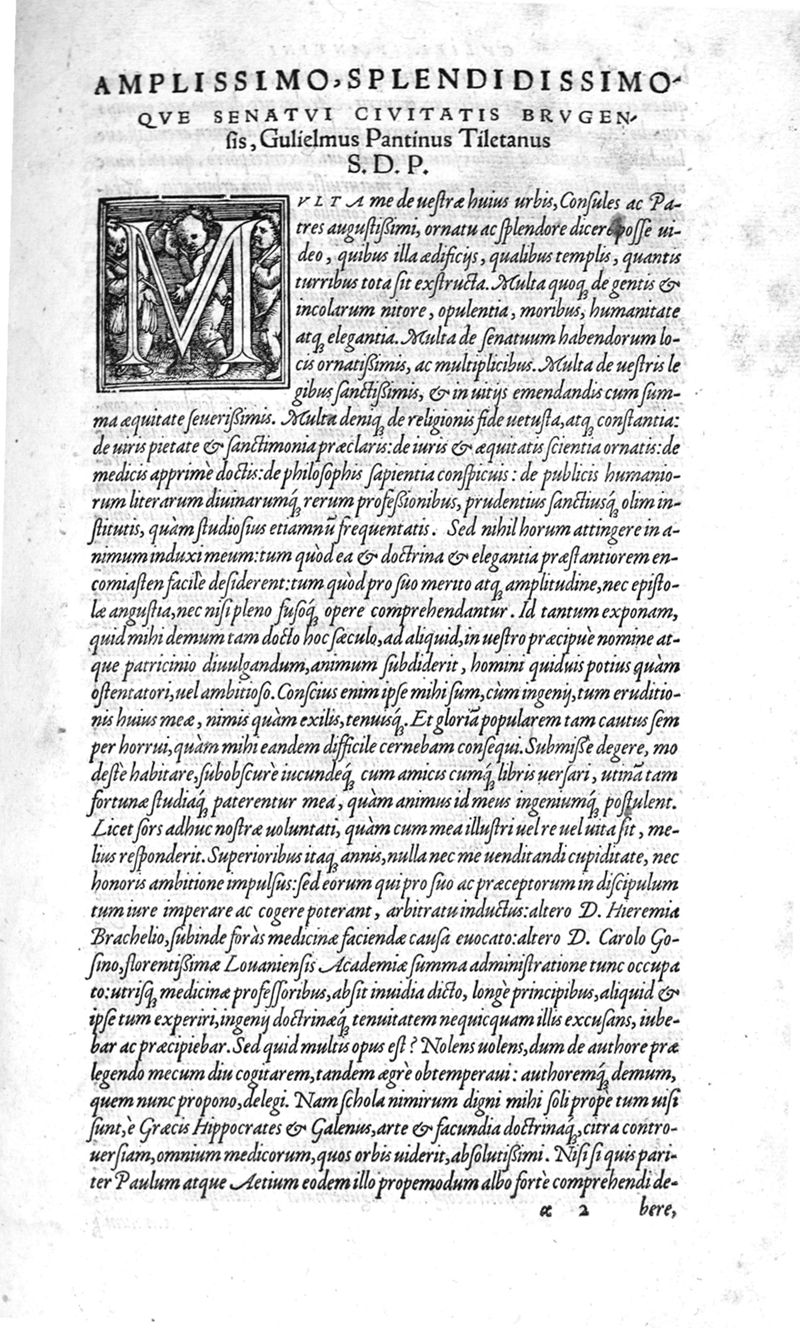 AMPLISSIMO, SPLENDIDISSIMO-
QVE SENATVI CIVITATIS BRVGEN-
sis, Gulielmus Pantinus Tiletanus
S. D. P.
MVLTA me de uestræ huius urbis, Consules ac Pa-
tres augustißimi, ornatu ac splendore dicere posse ui-
deo, quibus illa ædificijs, qualibus templis, quantis
turribus tota sit exstructa. Multa quoq; de gentis &
incolarum nitore, opulentia, moribus, humanitate
atq; elegantia. Multa de senatuum habendorum lo-
cis ornatißimis, ac multiplicibus. Multa de uestris le
gibus sanctißimis, & in uitijs emendandis cum sum-
ma æquitate seuerißimis. Multa deniq; de religionis fide uetusta, atq; constantia:
de uiris pietate & sanctimonia præclaris: de iuris & æquitatis scientia ornatis: de
medicis apprimè doctis: de philosophis sapientia conspicuis: de publicis humanio-
rum literarum diuinarumq́; rerum professionibus, prudentius sanctiusq́; olim in-
stitutis, quàm studiosius etiamnū frequentatis. Sed nihil horum attingere in a-
nimum induxi meum: tum quòd ea & doctrina & elegantia præstantiorem en-
comiasten facilè desiderent: tum quòd pro suo merito atq; amplitudine, nec episto-
læ angustia, nec nisi pleno fusoq́; opere comprehendantur. Id tantum exponam,
quid mihi demum tam docto hoc sæculo, ad aliquid, in uestro præcipuè nomine at-
que patricinio diuulgandum, animum subdiderit, homini quiduis potius quàm
ostentatori, uel ambitioso. Conscius enim ipse mihi sum, cùm ingenij, tum eruditio-
nis huius meæ, nimis quàm exilis, tenuisq́;. Et gloriā popularem tam cautus sem
per horrui, quàm mihi eandem difficile cernebam consequi. Submissè degere, mo
destè habitare, subobscurè iucundeq́; cum amicis cumq́; libris uersari, utinā tam
fortunæ studiaq́; paterentur mea, quàm animus id meus ingeniumq́; postulent.
Licet sors adhuc nostræ uoluntati, quàm cum mea illustri uel re uel uita sit, me-
lius responderit. Superioribus itaq; annis, nulla nec me uenditandi cupiditate, nec
honoris ambitione impulsus: sed eorum qui pro suo ac præceptorum in discipulum
tum iure imperare ac cogere poterant, arbitratu inductus: altero D. Hieremia
Brachelio, subinde foràs medicinæ faciendæ causa euocato: altero D. Carolo Go-
sino, florentißimæ Louaniensis Academiæ summa administratione tunc occupa
to: utrisq; medicinæ professoribus, absit inuidia dicto, longè principibus, aliquid &
ipse tum experiri, ingenij doctrinæq́; tenuitatem nequicquam illis excusans, iube-
bar ac præcipiebar. Sed quid multis opus est? Nolens uolens, dum de authore præ
legendo mecum diu cogitarem, tandem ægrè obtemperaui: authoremq́; demum,
quem nunc propono, delegi. Nam schola nimirum digni mihi soli propè tum uisi
sunt, è Græcis Hippocrates & Galenus, arte & facundia doctrinaq́;, citra contro-
uersiam, omnium medicorum, quos orbis uiderit, absolutißimi. Nisi si quis pari-
ter Paulum atque Aetium eodem illo propemodum albo fortè comprehendi de-
æ 2 bere,